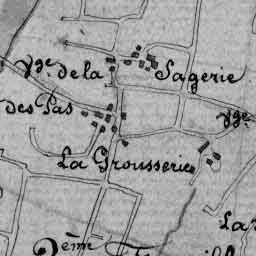 Vge. de la Sagerie
des Pas
Vge.
La Grousserie
La
2ème